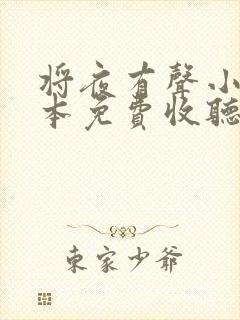 將夜有聲小
本免費收聽
東家少爺